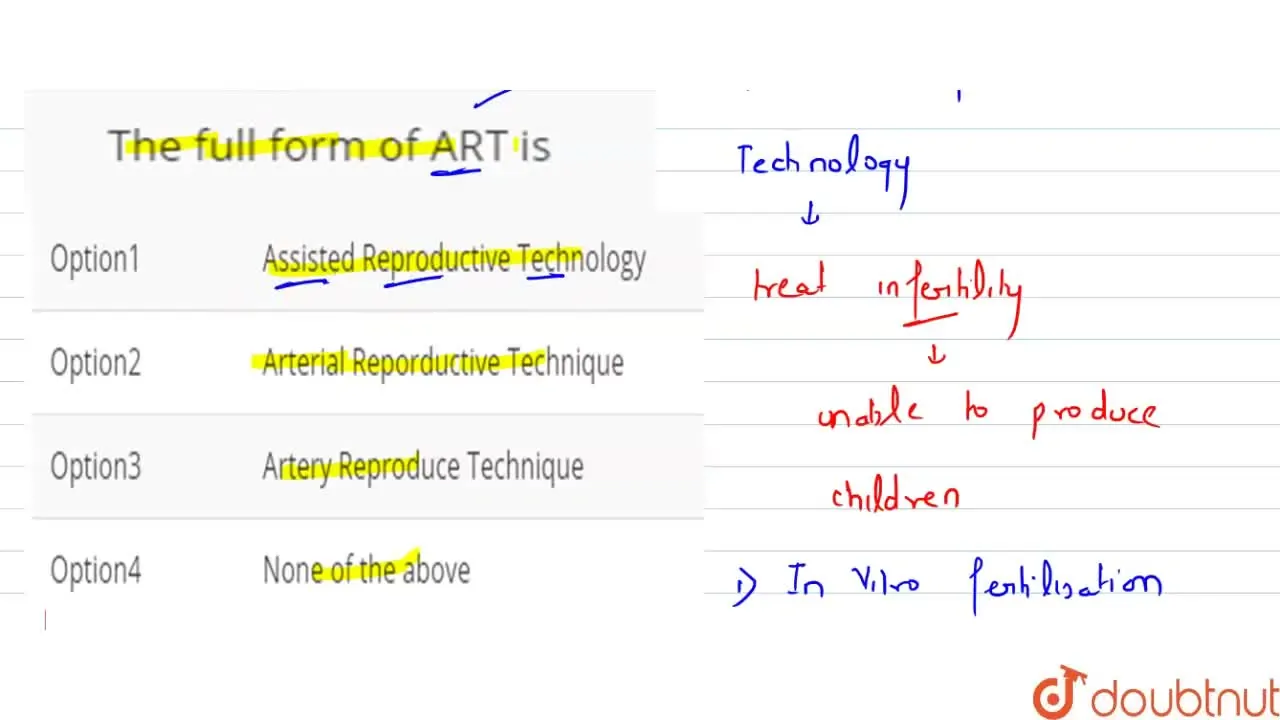 The full form of ART is
Option1 Assisted Reproductive Technology
Option2 Arterial Reporductive Technique
Option3 Artery Reproduce Technique
Option4 None of the above
Technology
↓
treat infertility
↓
unable to produce
children
1) In Vitro fertilisation
doubtnut